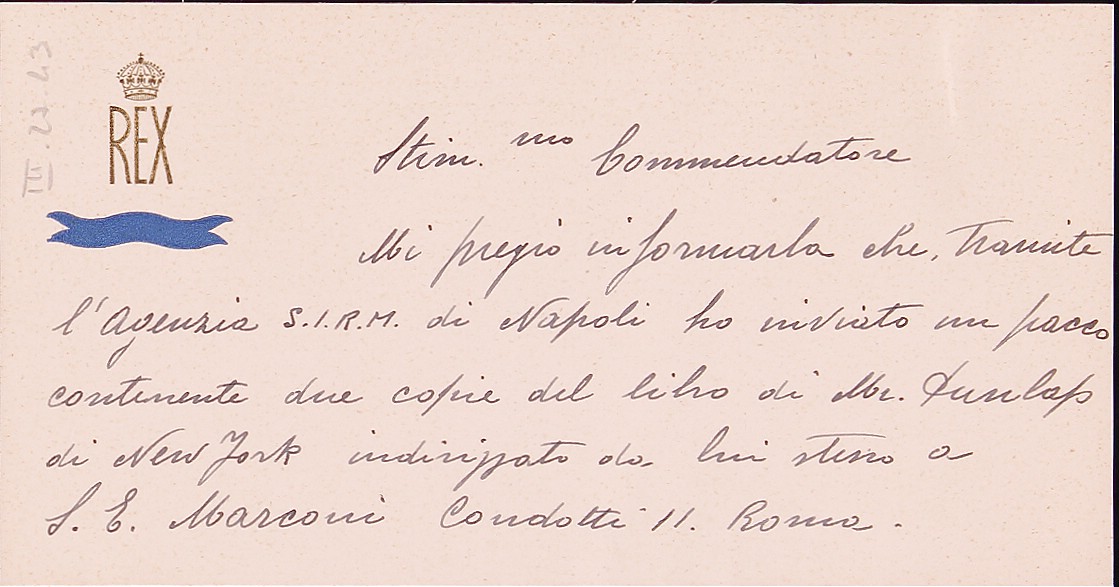 III.23.43
REX
Stim.mo Commendatore
Mi pregio informarla che, tramite
l'Agenzia S.I.R.M. di Napoli ho inviato un pacco
contenente due copie del libro di Mr. Dunlap
di New York indirizzato da lui stesso a
S. E. Marconi Condotti 11. Roma.